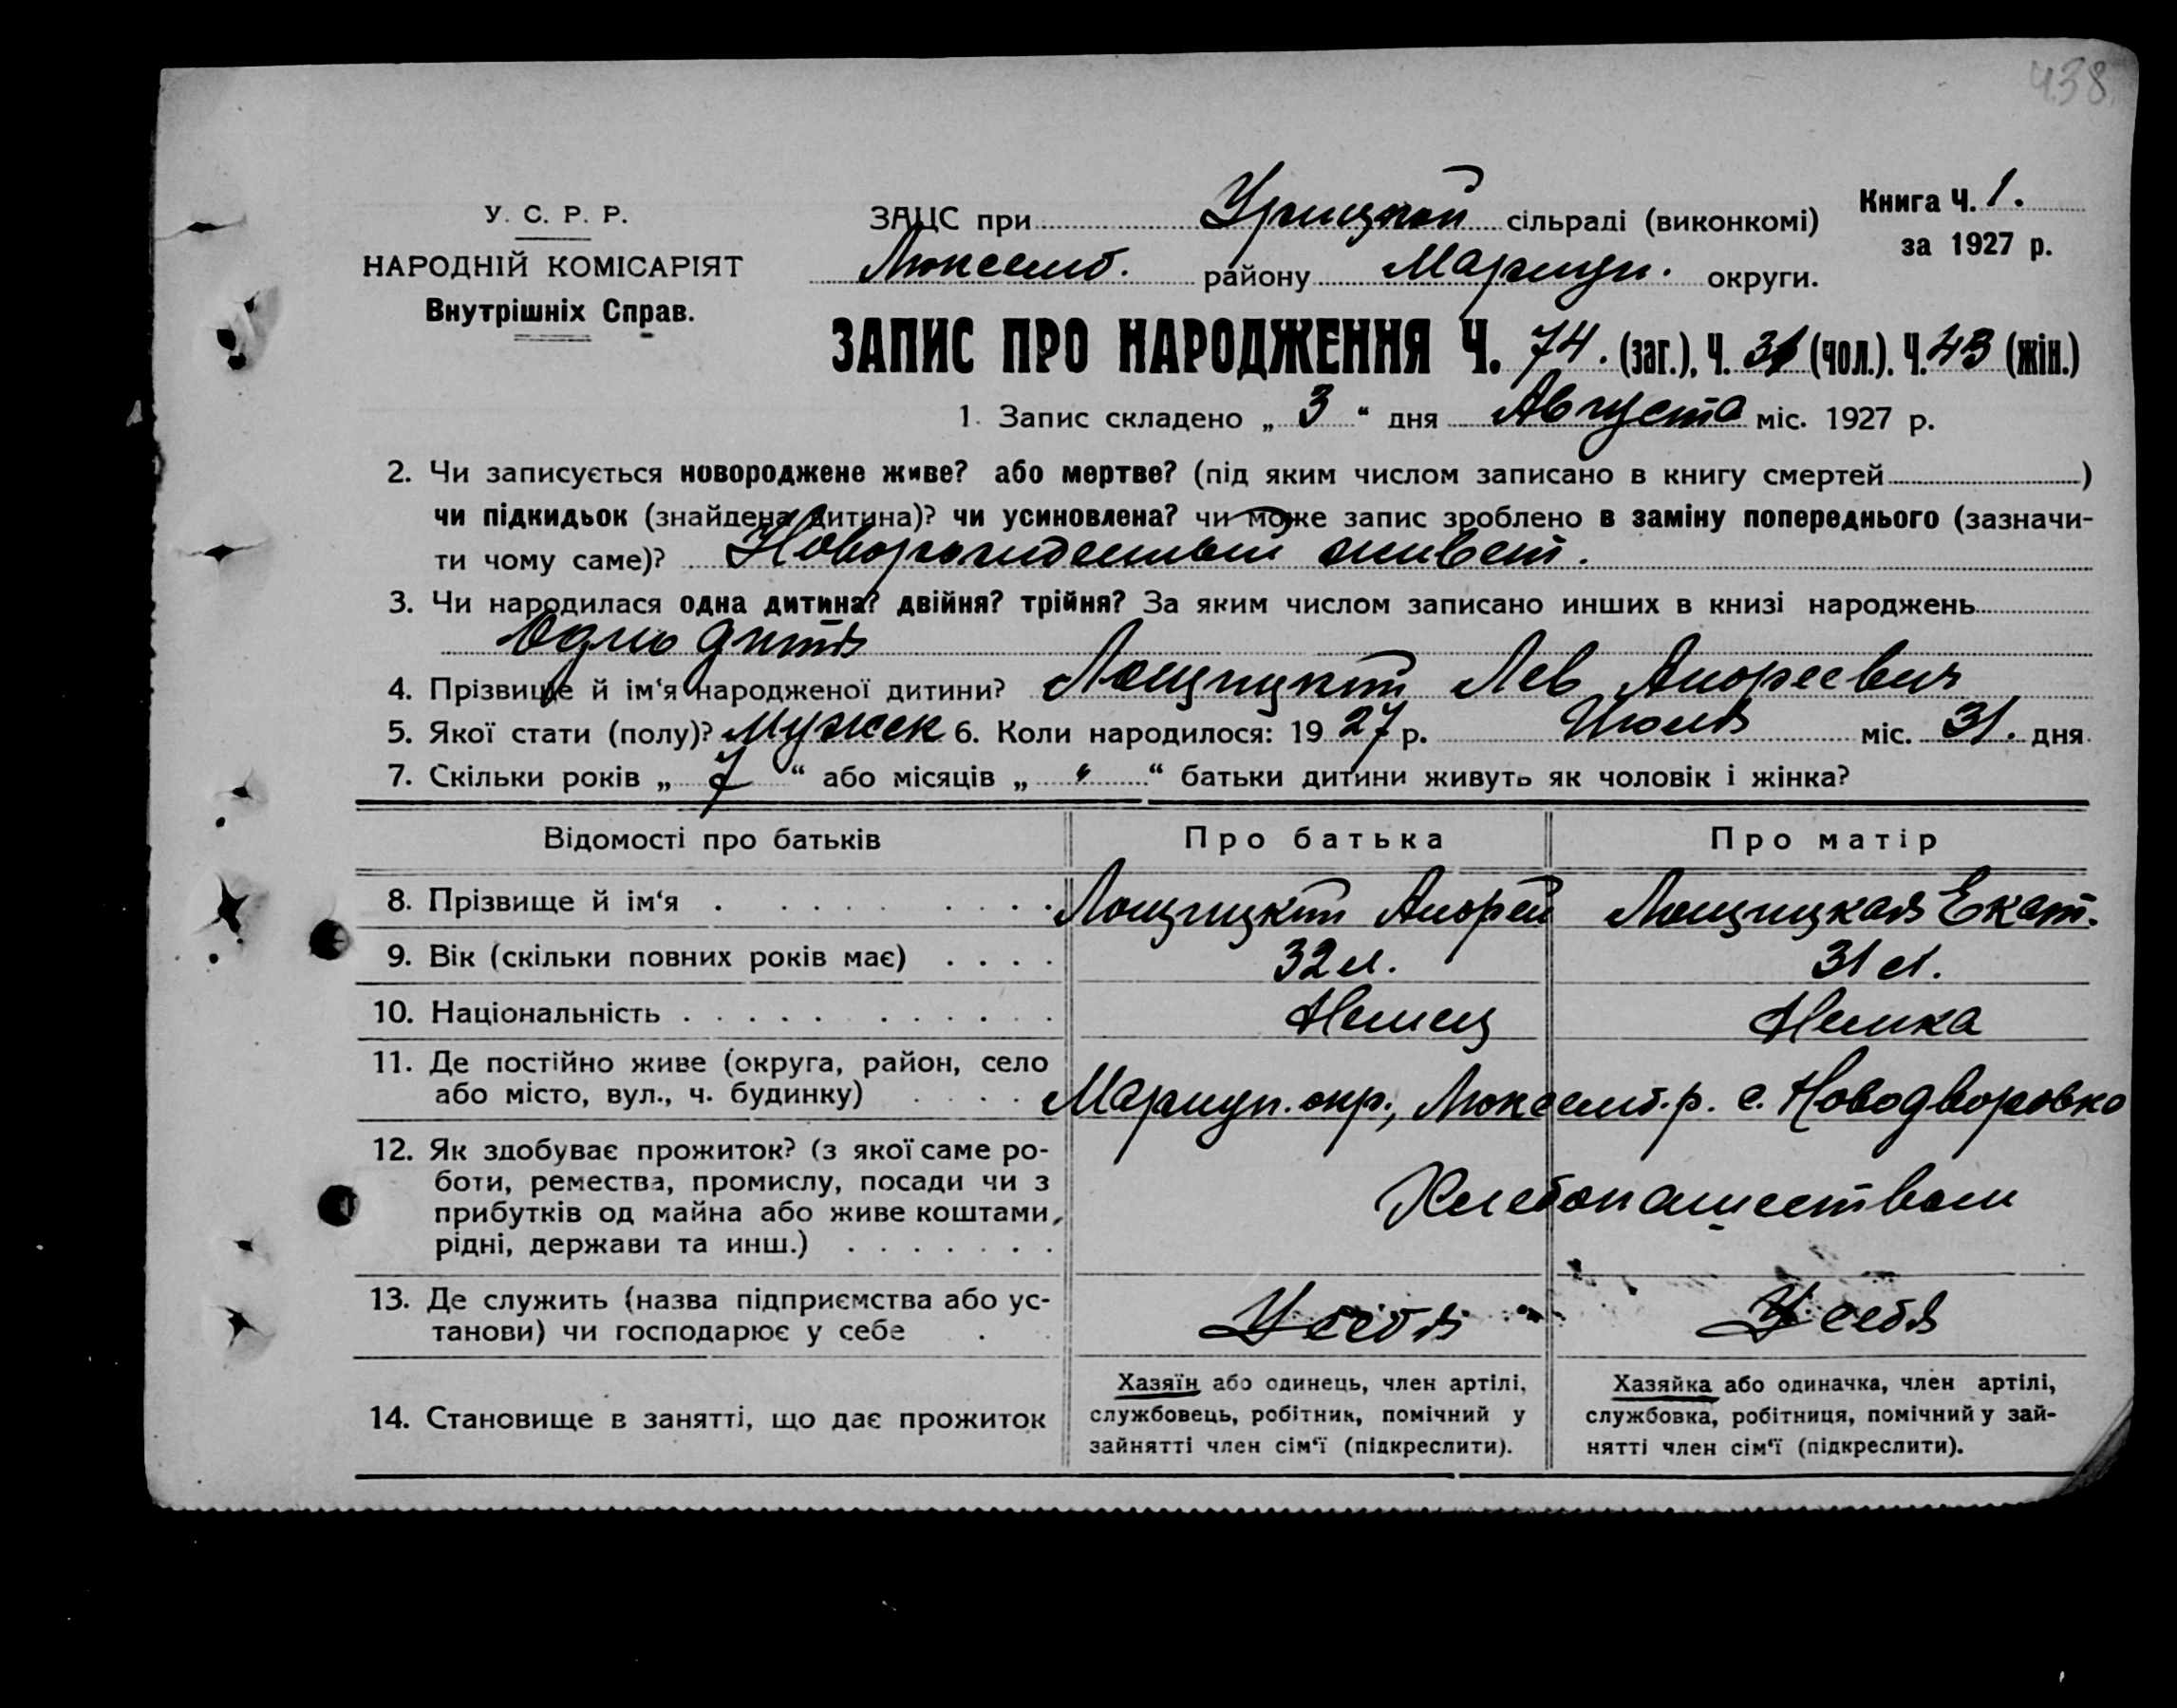 438
У. С. Р. Р.
НАРОДНІЙ КОМІСАРІЯТ
Внутрішніх Справ.
ЗАЦС при Урицкой сільраді (виконкомі)
Люксемб. району Мариуп. округи.
Книга Ч. 1.
за 1927 р.
ЗАПИС ПРО НАРОДЖЕННЯ Ч. 74. (заг.), Ч. 31 (чол.). Ч. 43 (жін.)
1. Запис складено „ 3 “ дня Августа міс. 1927 р.
2. Чи записується новороджене живе? або мертве? (під яким числом записано в книгу смертей )
чи підкидьок (знайдена дитина)? чи усиновлена? чи може запис зроблено в заміну попереднього (зазначи-
ти чому саме)? Новорожденный живет.
3. Чи народилася одна дитина? двійня? трійня? За яким числом записано инших в книзі народжень
Одно дитя
4. Прізвище й ім‘я народженої дитини? Лощицкий Лев Андреевич
5. Якої стати (полу)? Мужск 6. Коли народилося: 19 27 р. Июля міс. 31. дня
7. Скільки років „ 7 “ або місяців „ “ батьки дитини живуть як чоловік і жінка?
Відомості про батьків Про батька Про матір
8. Прізвище й ім‘я Лощицкий Андрей Лощицкая Екат.
9. Вік (скільки повних років має) 32 л. 31 л.
10. Національність Немец Немка
11. Де постійно живе (округа, район, село
або місто, вул., ч. будинку) Мариуп. окр., Люксемб. р. с. Новодворовка
12. Як здобуває прожиток? (з якої саме ро-
боти, ремества, промислу, посади чи з
прибутків од майна або живе коштами,
рідні, держави та инш.) Хлебопашеством
13. Де служить (назва підприємства або ус-
танови) чи господарює у себе У себя У себя
14. Становище в занятті, що дає прожиток
Хазяїн або одинець, член артілі,
службовець, робітник, помічний у
зайнятті член сім‘ї (підкреслити).
Хазяйка або одиначка, член артілі,
службовка, робітниця, помічний у зай-
нятті член сім‘ї (підкреслити).